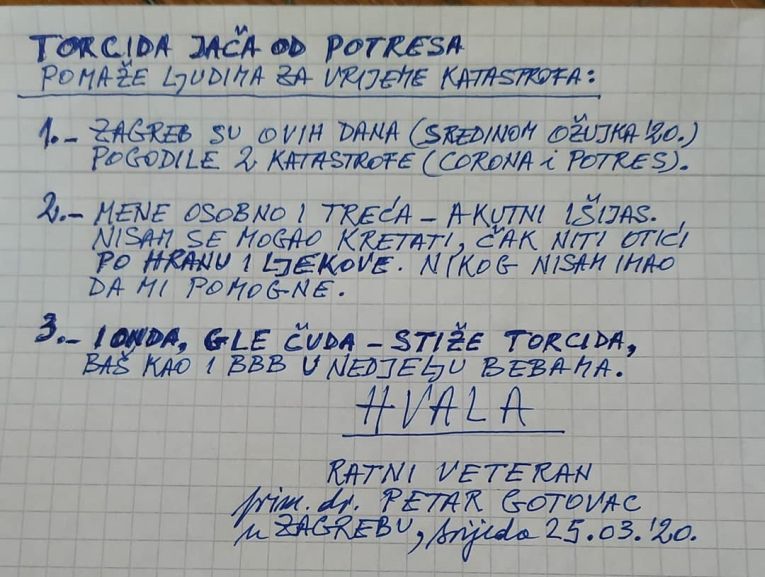 TORCIDA JAČA OD POTRESA
POMAŽE LJUDIMA ZA VRIJEME KATASTROFA:
1.- ZAGREB SU OVIH DANA (SREDINOM OŽUJKA '20.)
POGODILE 2 KATASTROFE (CORONA i POTRES).
2.- MENE OSOBNO I TREĆA - AKUTNI IŠIJAS.
NISAM SE MOGAO KRETATI, ČAK NITI OTIĆI
PO HRANU I LJEKOVE. NIKOG NISAM IMAO
DA MI POMOGNE.
3.- I ONDA, GLE ČUDA - STIŽE TORCIDA,
BAŠ KAO I BBB U NEDJELJU BEBAMA.
HVALA
RATNI VETERAN
prim. dr. PETAR GOTOVAC
u ZAGREBU, srijeda 25.03.'20.